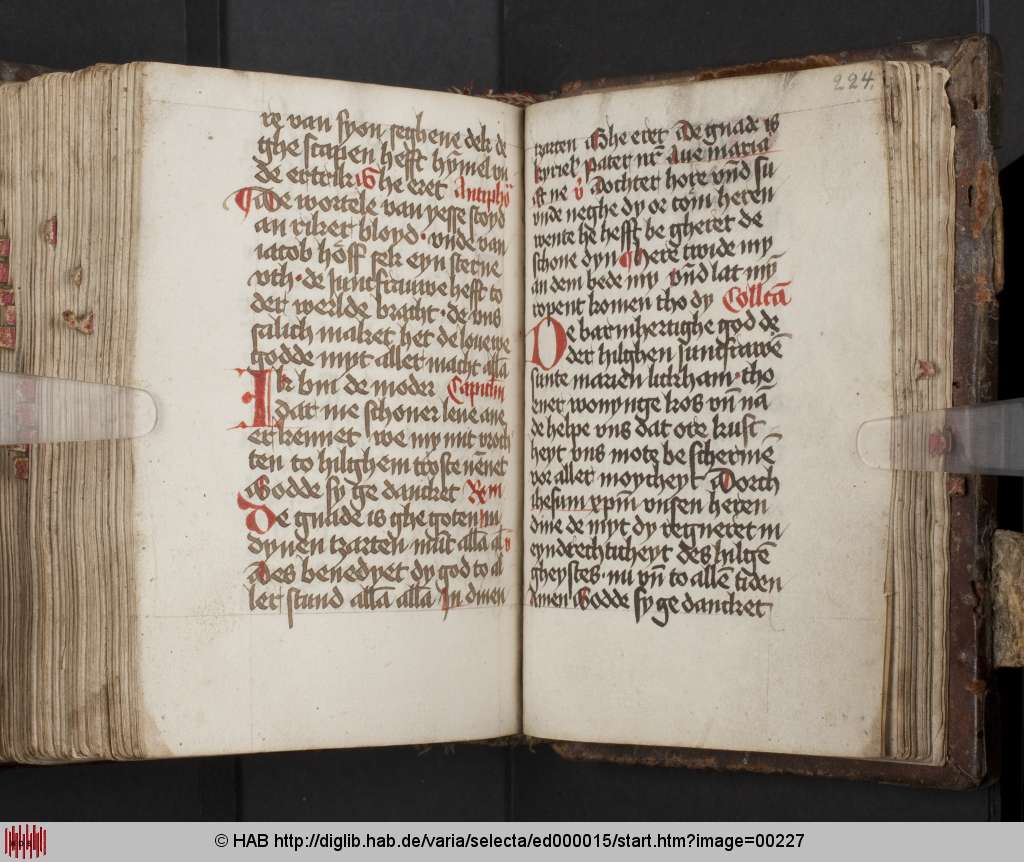 re van syon seghene dek de
ghe scapen hefft hym̄el vn̄
de ertrik Ghe eret Antiphō
De wortele van yesse stoyd
an riker bloyd · vnde van
iacob hoff sek eyn sterne
vth · de juncfrauwe hefft to
der werlde bracht · de vns
salich maket het de louewe
godde myt aller macht allā
Ik bin de moder Capitlm̄
dat me schoner leue ane
erkennet we my mit vroch
ten to hilghem troste nēnet
Godde sy ge dancket Rem̄
De gnade is ghe goten in
dynen tzarten mūt allā al v̄
Des benedyet dy god to al
ler stund allā allā In dinen
tzarten Ghe eret De gnade is
kyriel᷑ Pater nr̄ Aue maria
cst ne v̄ Dochter hore vn̄d su
vnde neghe dy or to mȳ heren
wente he hefft be gheret de
schone dyn Here twide my
an dem bede my vn̄d lat mȳ
ropent komen tho dy Collcā
De barmhertighe god de
der hilghen juncfrawē
sunte marien licham · tho
ener wonynge kos vn̄ nā
de helpe vns dat ore kusc
heyt vns mote be schermē
vor aller moycheyt Dorch
ihesum xp̄m vnsen heren
dine de myt dy regneret in
eyndrechticheyt des hilgē
gheystes · nu vn̄ to allē tiden
Amen Godde sy ge dancket
224,
© HAB http://diglib.hab.de/varia/selecta/ed000015/start.htm?image=00227